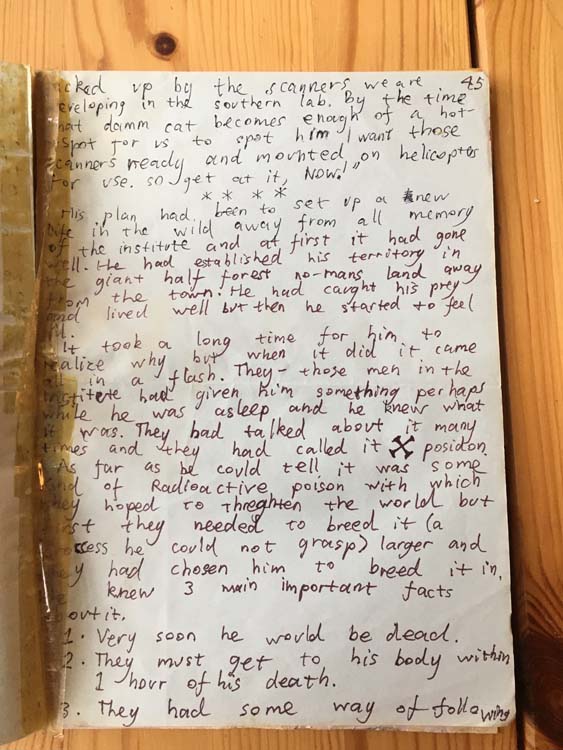 icked up by the scanners we are 45
eveloping in the southern lab. By the time
hat damm cat becomes enough of a hot-
spot for us to spot him I want those
scanners ready and mounted on helicopters
for use. so get at it, NOW!"
* * * *
His plan had been to set up a new
life in the wild away from all memory
of the institute and at first it had gone
well. He had established his territory in
the giant half forest no-mans land away
from the town. He had caught his prey
and lived well but then he started to feel
ill.
It took a long time for him to
realize why but when it did it came
all in a flash. They- those men in the
institute had given him something perhaps
while he was asleep and he knew what
it was. They had talked about it many
times and they had called it posidon.
As far as he could tell it was some
kind of Radioactive poison with which
they hoped to threghten the world but
first they needed to breed it (a
process he could not grasp) larger and
they had chosen him to breed it in,
he knew 3 main important facts
about it.
1. Very soon he would be dead.
2. They must get to his body within
1 hour of his death.
3. They had some way of following